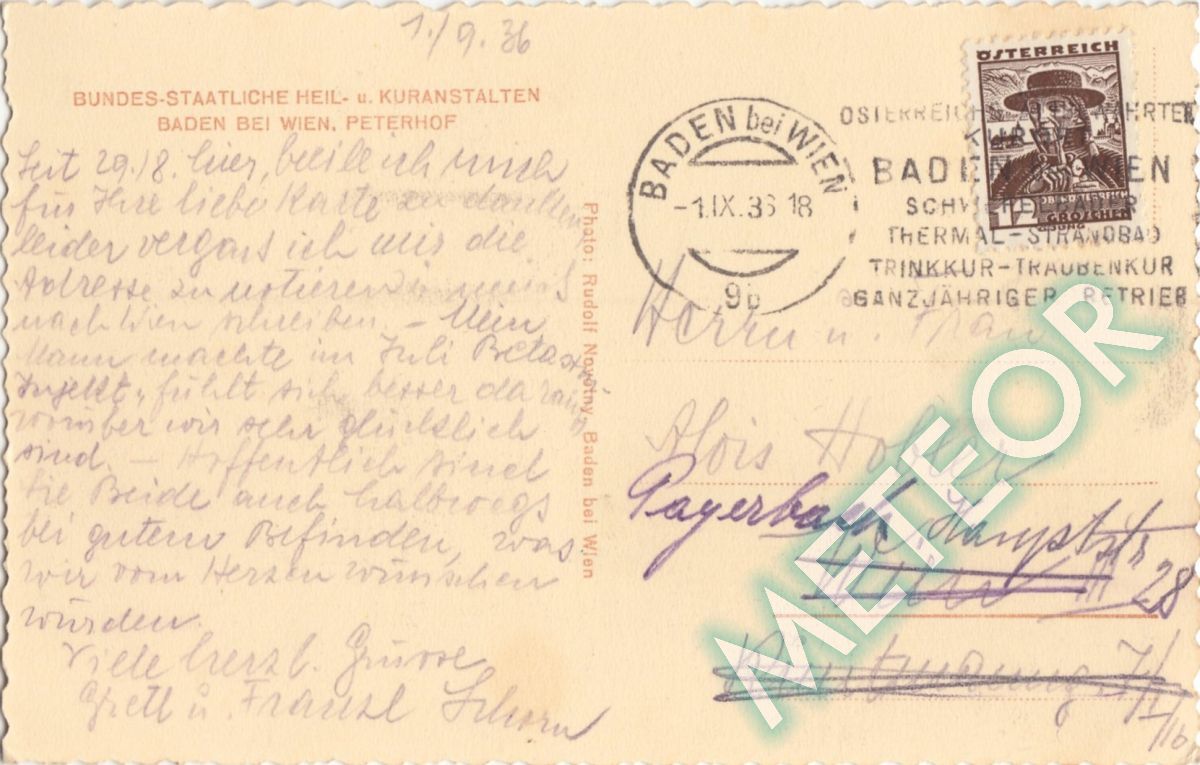 1./9.36
BUNDES-STAATLICHE HEIL- u. KURANSTALTEN
BADEN BEI WIEN, PETERHOF
Seit 29./8. hier, beeile ich mich
für Ihre liebe Karte zu danken
leider vergass ich mir die
Adresse zu notieren muss
nach Wien schreiben. – Mein
Mann machte im Juli
fühlt sich besser
worüber wir sehr glücklich
sind. – Hoffentlich sind
Sie Beide auch halbwegs
bei gutem Befinden, was
wir vom Herzen wünschen
würden.
Viele herzl. Grüsse
Gretl u. Franzl Schorn
Photo: Rudolf Novotny, Baden bei Wien
ÖSTERREICH
12
GROSCHEN
BADEN bei WIEN
-1.IX.36 18
9b
BADEN WIEN
THERMAL-STRANDBAD
TRINKKUR-TRAUBENKUR
GANZJÄHRIGER BETRIEB
Herrn u. Frau
Alois
Payerbach, Hauptstr
28
METEOR